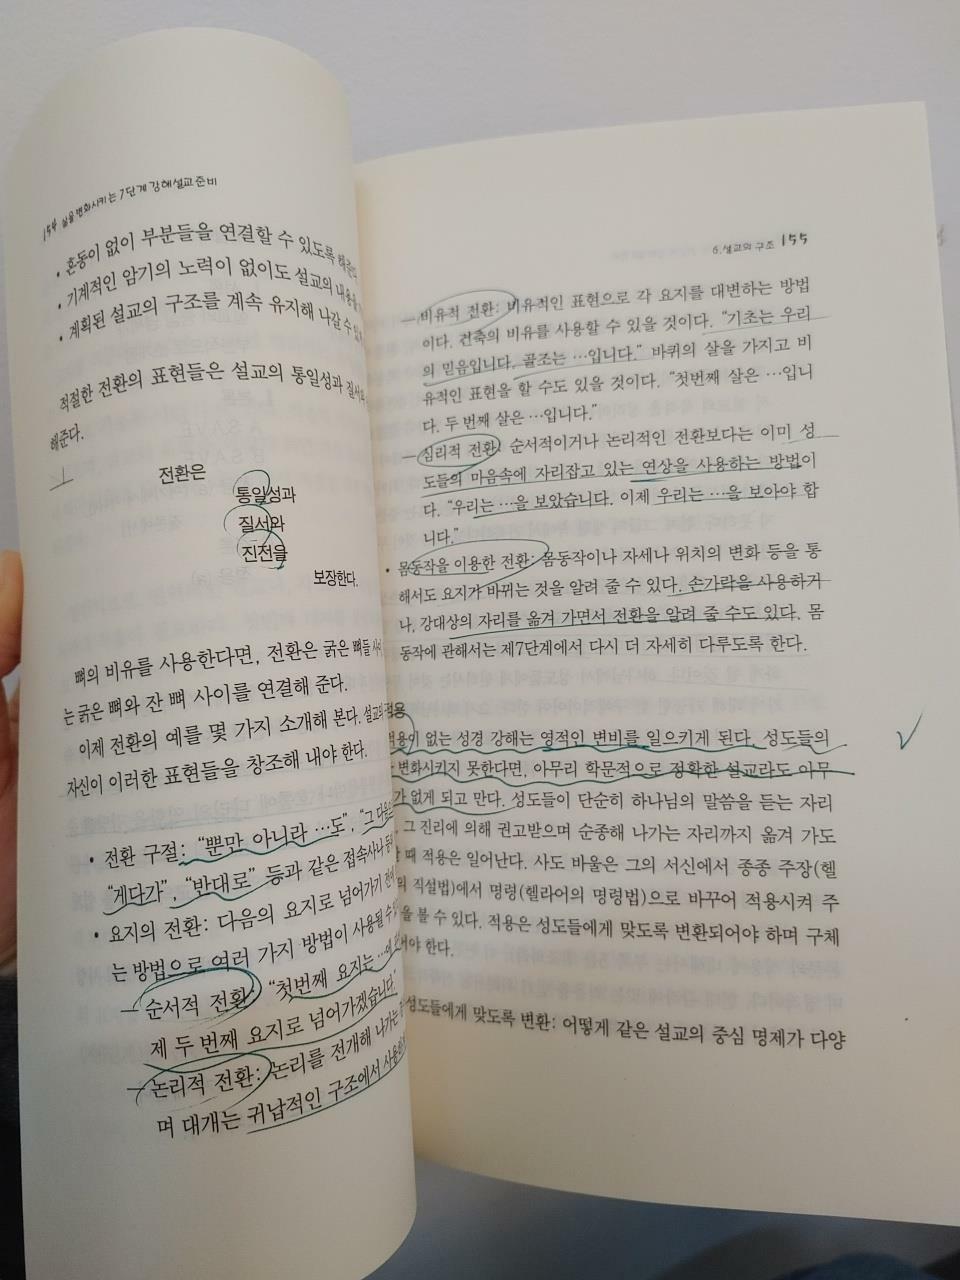 154 삶을 변화시키는 7단계 강해설교 준비
• 혼동이 없이 부분들을 연결할 수 있도록
• 기계적인 암기의 노력이 없이도 설교의 내용을
• 계획된 설교의 구조를 계속 유지해 나갈 수
적절한 전환의 표현들은 설교의 통일성과
해준다.
전환은
통일성과
질서와
진전을
보장한다.
뼈의 비유를 사용한다면, 전환은 굵은 뼈들
는 굵은 뼈와 잔 뼈 사이를 연결해 준다.
이제 전환의 예를 몇 가지 소개해 본다. 설교
자신이 이러한 표현들을 창조해 내야 한다.
• 전환 구절: “뿐만 아니라 …도”, “그 다음
“게다가”, “반대로” 등과 같은 접속사나
• 요지의 전환: 다음의 요지로 넘어가기
는 방법으로 여러 가지 방법이 사용될 수
— 순서적 전환: “첫번째 요지는…
제 두 번째 요지로 넘어가겠습니다.”
— 논리적 전환: 논리를 전개해 나가는
며 대개는 귀납적인 구조에서
6. 설교의 구조 155
— 비유적 전환: 비유적인 표현으로 각 요지를 대변하는 방법
이다. 건축의 비유를 사용할 수 있을 것이다. “기초는 우리
의 믿음입니다. 골조는 …입니다.” 바퀴의 살을 가지고 비
유적인 표현을 할 수도 있을 것이다. “첫번째 살은 …입니
다. 두 번째 살은 …입니다.”
— 심리적 전환: 순서적이거나 논리적인 전환보다는 이미 성
도들의 마음속에 자리잡고 있는 연상을 사용하는 방법이
다. “우리는 …을 보았습니다. 이제 우리는 …을 보아야 합
니다.”
• 몸동작을 이용한 전환: 몸동작이나 자세나 위치의 변화 등을 통
해서도 요지가 바뀌는 것을 알려 줄 수 있다. 손가락을 사용하거
나, 강대상의 자리를 옮겨 가면서 전환을 알려 줄 수도 있다. 몸
동작에 관해서는 제7단계에서 다시 더 자세히 다루도록 한다.
적용
없는 성경 강해는 영적인 변비를 일으키게 된다. 성도들의
변화시키지 못한다면, 아무리 학문적으로 정확한 설교라도 아무
가 없게 되고 만다. 성도들이 단순히 하나님의 말씀을 듣는 자리
그 진리에 의해 권고받으며 순종해 나가는 자리까지 옮겨 가도
때 적용은 일어난다. 사도 바울은 그의 서신에서 종종 주장(헬
의 직설법)에서 명령(헬라어의 명령법)으로 바꾸어 적용시켜 주
을 볼 수 있다. 적용은 성도들에게 맞도록 변환되어야 하며 구체
야 한다.
성도들에게 맞도록 변환: 어떻게 같은 설교의 중심 명제가 다양